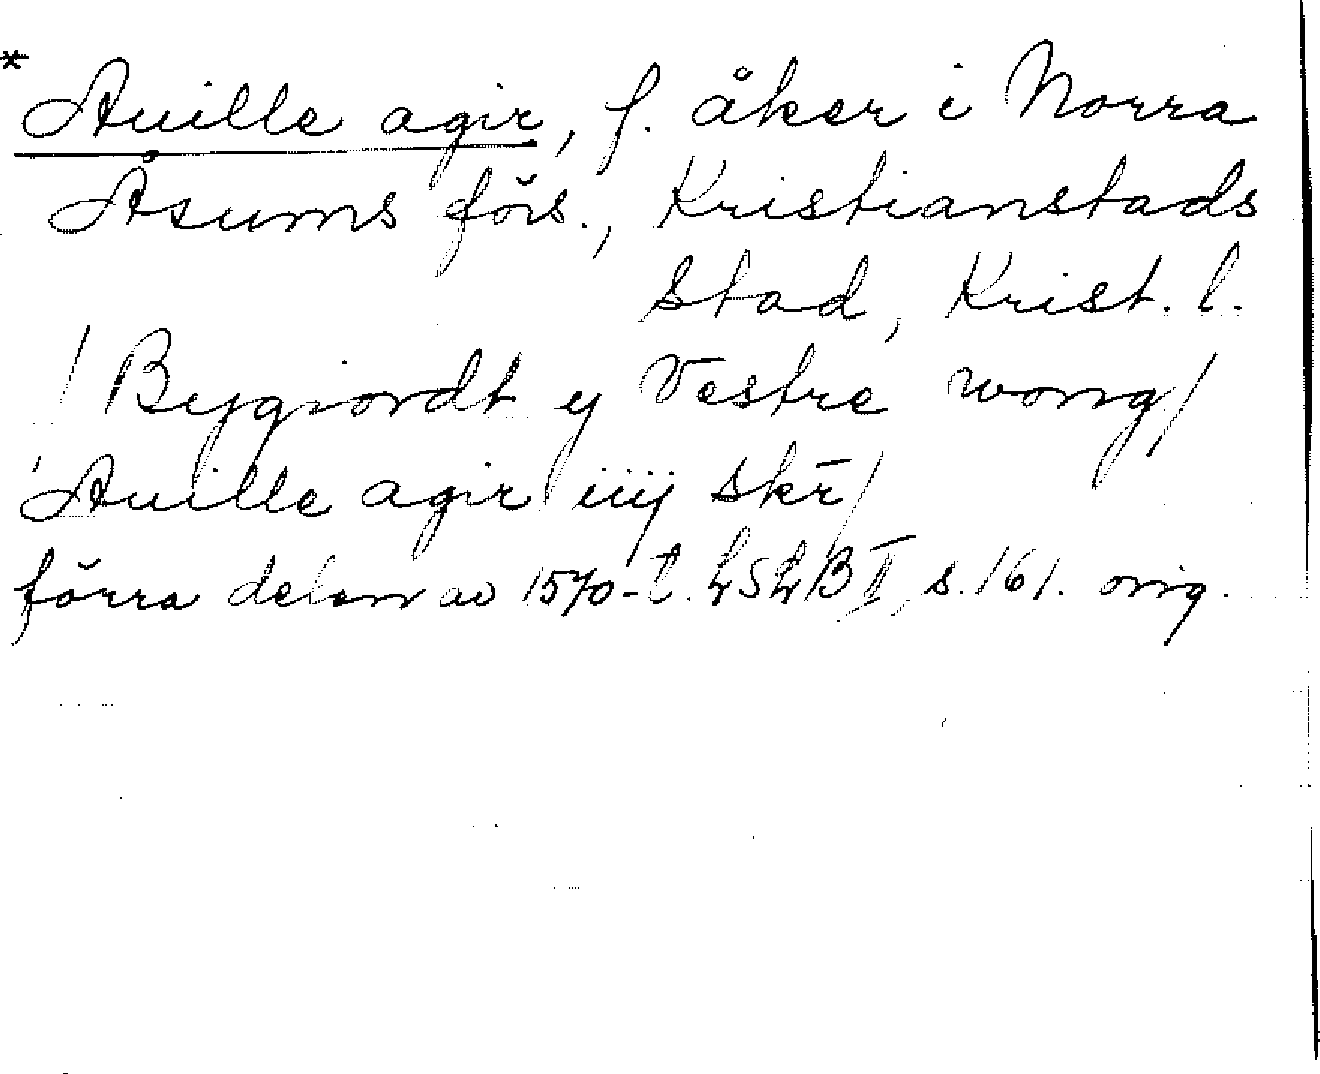 * Auille agir, f. åker i Norra
Åsums förs., Kristianstads
stad, Krist. l.
/ Bygiordt y Vestre wong /
Auille agir iiij skr̄ /
förra delen av 1570-t. LSLB II, s. 161. orig.